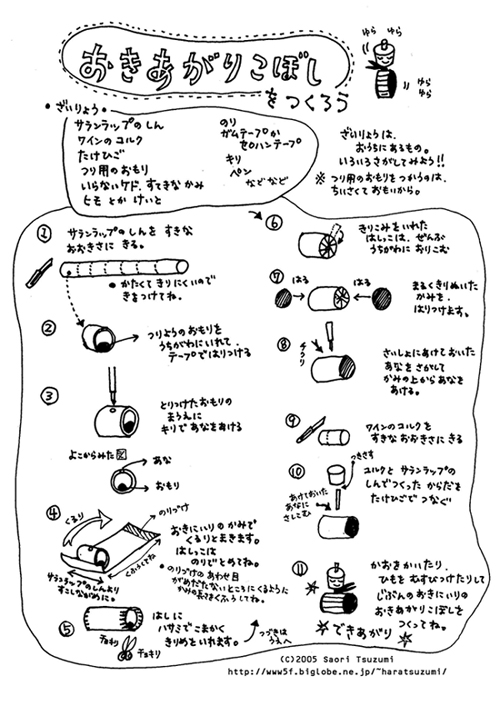 ゆら ゆら
おきあがりこぼし
をつくろう
ゆら
ゆら
・ざいりょう・
サランラップのしん
ワインのコルク
たけひご
つり用のおもり
いらないケド、すてきなかみ
ヒモ とか けいと
のり
ガムテープか
セロハンテープ
キリ
ペン
などなど
ざいりょうは、
おうちにあるもの。
いろいろさがしてみよう!!
※ つり用のおもりをつかうのは、
ちいさくておもいから。
① サランラップのしんを すきな
おおきさに きる。
・かたくてきりにくいので
きをつけてね。
② つりようのおもりを
うちがわにいれて、
テープではりつける
③ とりつけたおもりの
まうえに
キリであなをあける
よこからみた図
あな
おもり
④ くるり
のりづけ
サランラップのしんより
すこしながめに。
くふうしてね
おきにいりのかみで
くるりとまきます。
はしっこは
のりでとめてね。
・のりづけのあわせ目
がめだたないところにくるように
かみの長さをくふうしてね。
⑤ はしに
ハサミでこまかく
きりめをいれます。
チョキ
チョキリ
つづきは
うえへ
⑥ きりこみをいれた
はしっこは、ぜんぶ
うちがわにおりこむ
⑦ はる
はる
まるくきりぬいた
かみを、
はりつけます。
⑧ チクリ
さいしょにあけておいた
あなをさがして
かみの上からあなを
あける。
⑨ ワインのコルクを
すきなおおきさにきる
⑩ つきさす
あけておいた
あなに
さしこむ
コルクと サランラップの
しんでつくった からだを
たけひごで つなぐ
⑪ かおをかいたり、
ひもをむすびつけたりして
じぶんのおきにいりの
おきあがりこぼしを
つくってね。
できあがり
(C)2005 Saori Tsuzumi
http://www5f.biglobe.ne.jp/~haratsuzumi/